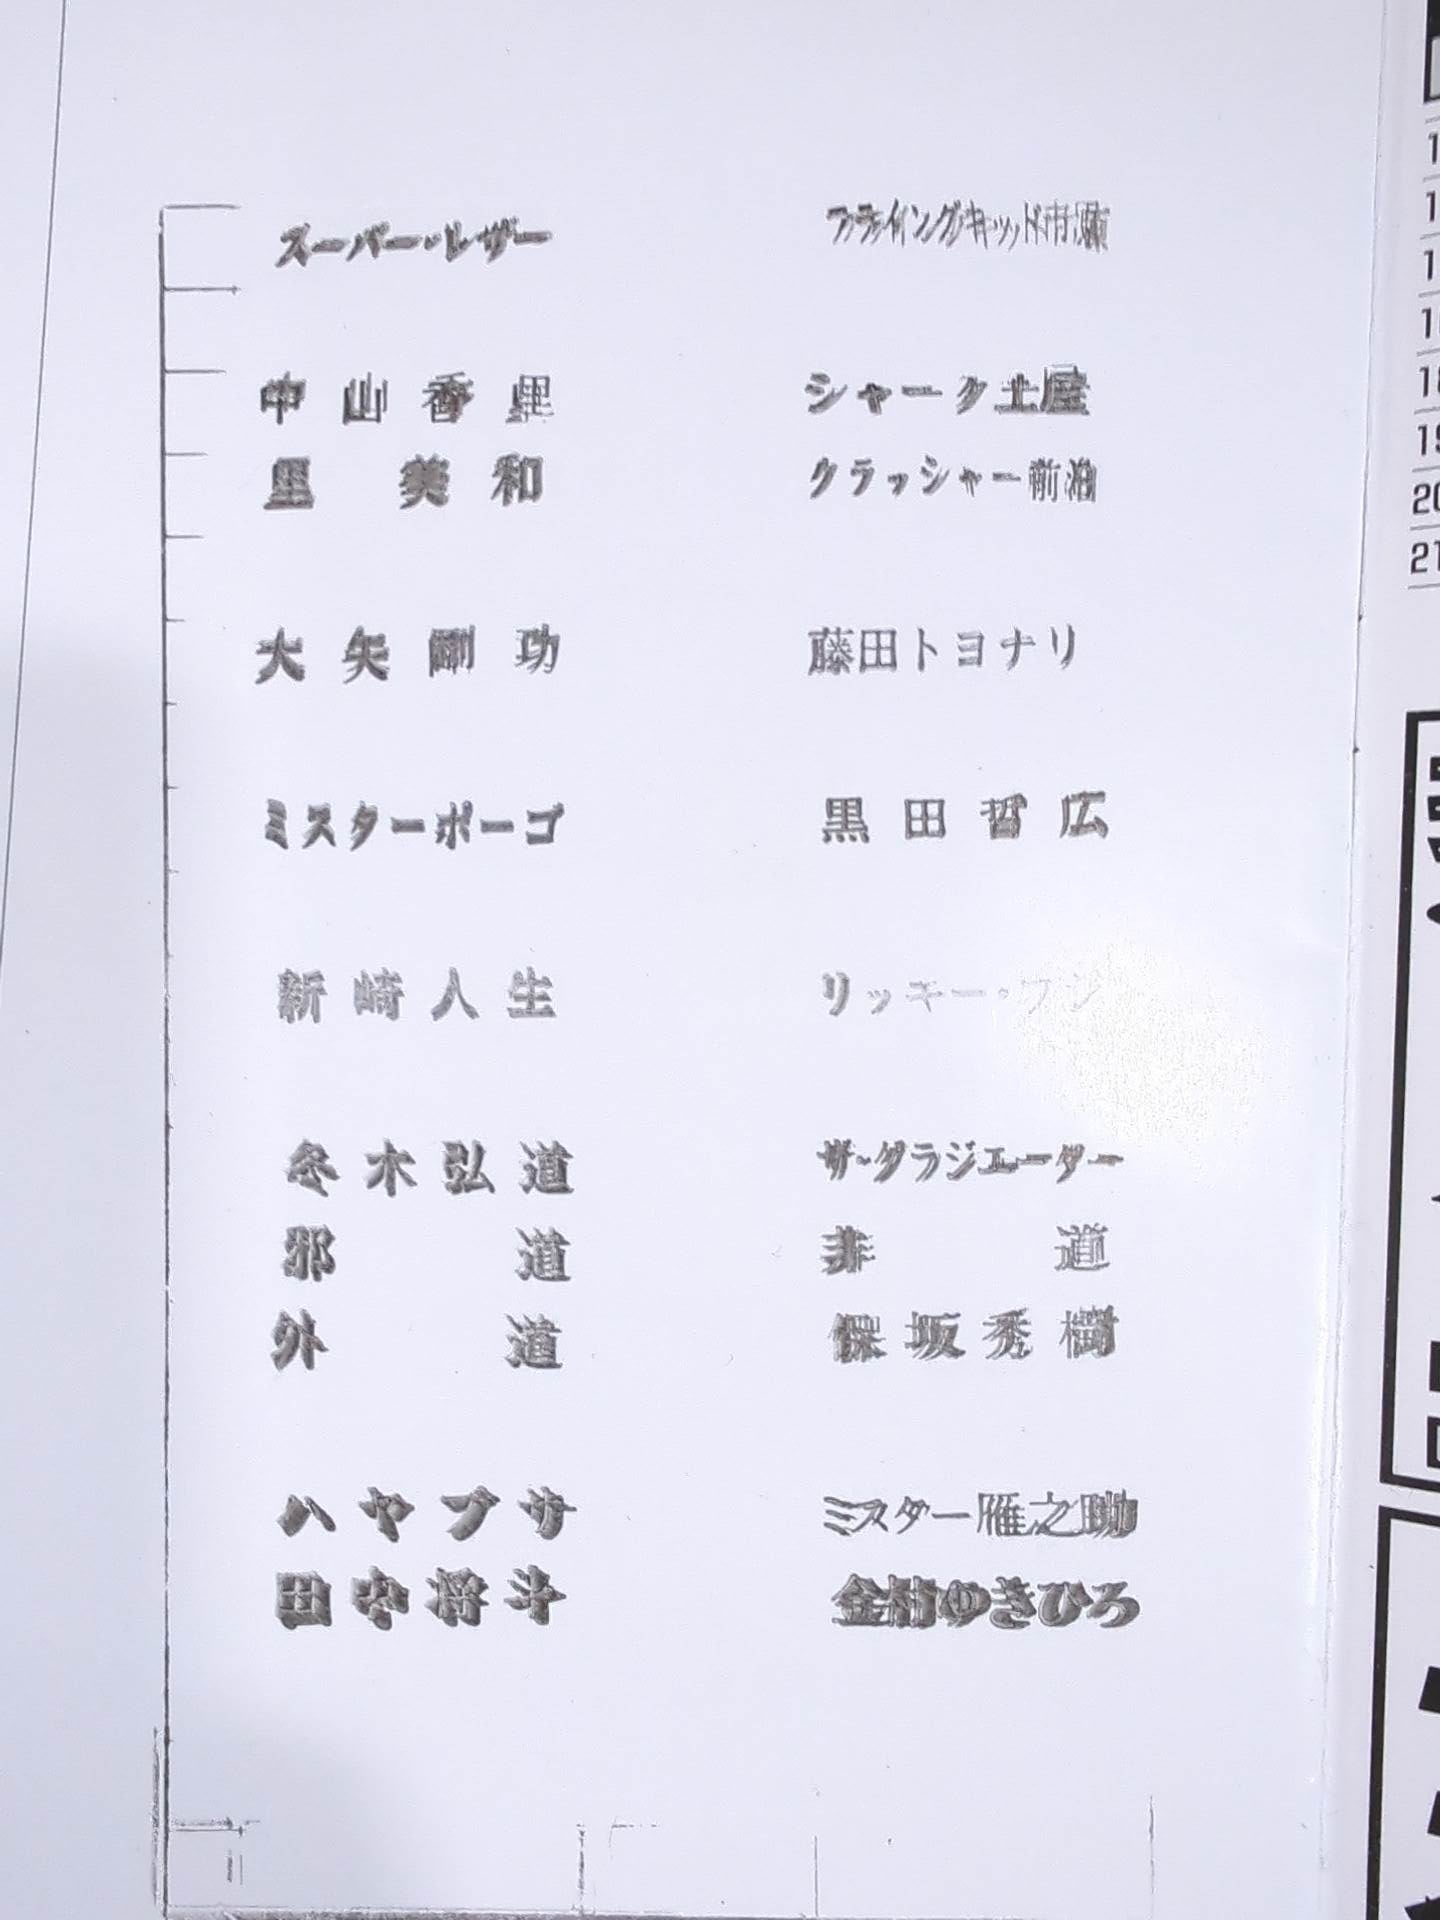 スーパー・レザー フライングキッド市原
中山香里 シャーク土屋
里美和 クラッシャー前泊
大矢剛功 藤田トヨナリ
ミスターポーゴ 黒田哲広
新崎人生 リッキー・フジ
冬木弘道 ザ・グラジエーター
邪道 非道
外道 保坂秀樹
ハヤブサ ミスター雁之助
田中将斗 金村ゆきひろ
18
19
20
21